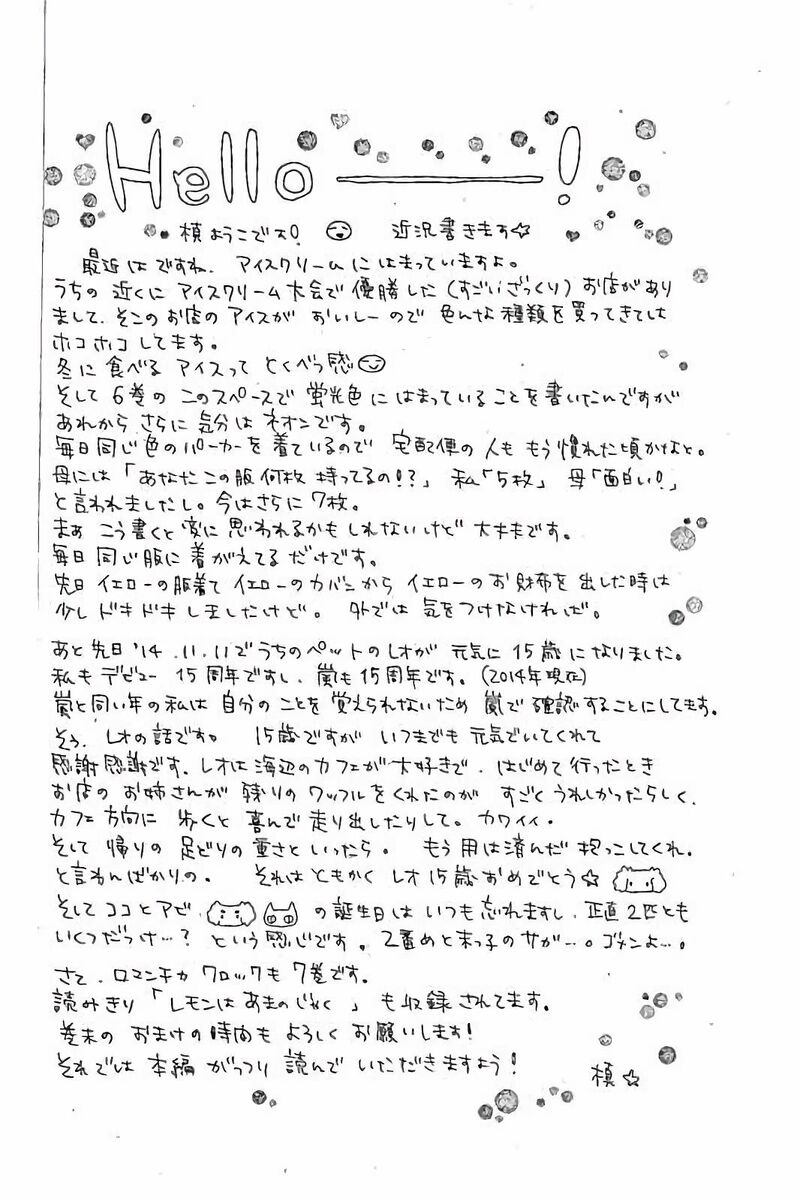 Hello―!
槙ようこでス! 近況書きます☆
最近はですね、アイスクリームにはまっていますよ。
うちの近くにアイスクリーム大会で優勝した(すごいざっくり)お店があり
まして、そこのお店のアイスがおいしーので色んな種類を買ってきては
ホコホコしてます。
冬に食べるアイスってとくべつ感
そして6巻のこのスペースで蛍光色にはまっていることを書いたんですが
あれからさらに気分はネオンです。
毎日同じ色のパーカーを着ているので宅配便の人ももう慣れた頃かなと。
母には「あなたこの服何枚持ってるの!?」私「5枚」母「面白い!」
と言われましたし。今はさらに7枚。
まぁこう書くと変に思われるかもしれないけど大丈夫です。
毎日同じ服に着がえてるだけです。
先日イエローの服着てイエローのカバンからイエローのお財布を出した時は
少しドキドキしましたけど。外では気をつけなければ。
あと先日'14.11.11でうちのペットのレオが元気に15歳になりました。
私もデビュー15周年ですし、嵐も15周年です。(2014年現在)
嵐と同い年の私は自分のことを覚えられないため嵐で確認することにしてます。
そう、レオの話です。15歳ですがいつまでも元気でいてくれて
感謝感謝です。レオは海辺のカフェが大好きで、はじめて行ったとき
お店のお姉さんが残りのワッフルをくれたのがすごくうれしかったらしく、
カフェ方向に歩くと喜んで走り出したりして。カワイイ。
そして帰りの足どりの重さといったら。もう用は済んだ抱っこしてくれ。
と言わんばかりの。それはともかくレオ15歳おめでとう☆
そしてココとアビ、の誕生日はいつも忘れますし、正直2匹とも
いくつだっけ…?という感じです。2番めと末っ子のサガ…。ゴメンよ…。
さて、ロマンチカクロックも7巻です。
読みきり「レモンはあまのじゃく」も収録されてます。
巻末のおまけの時間もよろしくお願いします!
それでは本編がっつり読んでいただきますよう!
槙☆